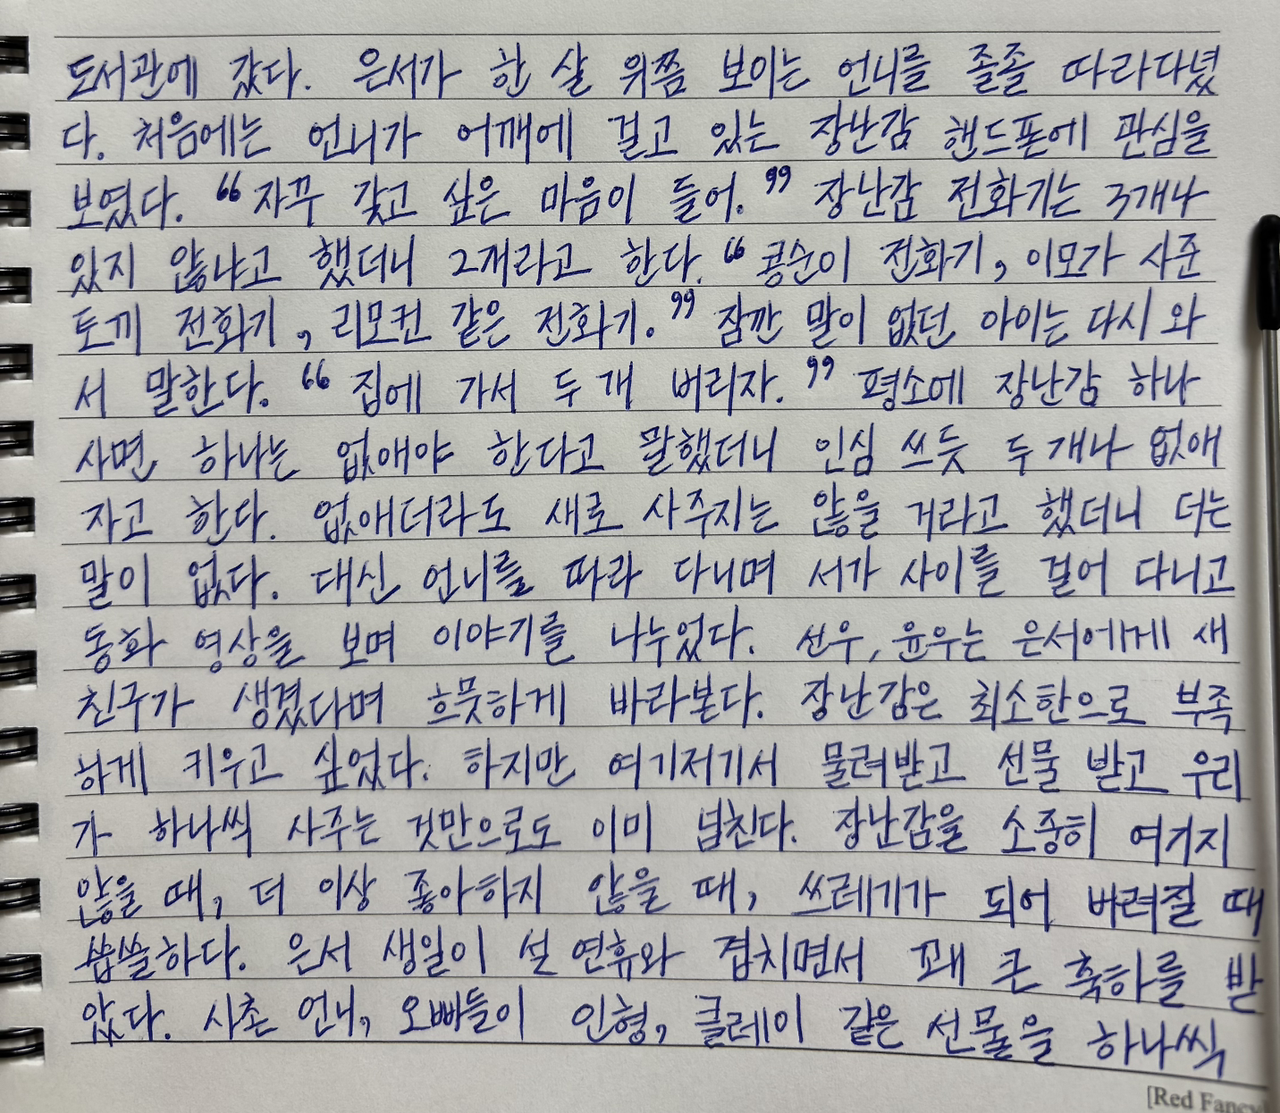 도서관에 갔다. 은서가 한 살 위쯤 보이는 언니를 졸졸 따라다녔
다. 처음에는 언니가 어깨에 걸고 있는 장난감 핸드폰에 관심을
보였다. “자꾸 갖고 싶은 마음이 들어.” 장난감 전화기는 3개나
있지 않냐고 했더니 2개라고 한다. “콩순이 전화기, 이모가 사준
토끼 전화기, 리모컨 같은 전화기.” 잠깐 말이 없던 아이는 다시 와
서 말한다. “집에 가서 두 개 버리자.” 평소에 장난감 하나
사면 하나는 없애야 한다고 말했더니 인심 쓰듯 두 개나 없애
자고 한다. 없애더라도 새로 사주지는 않을 거라고 했더니 더는
말이 없다. 대신 언니를 따라 다니며 서가 사이를 걸어 다니고
동화 영상을 보며 이야기를 나누었다. 선우, 윤우는 은서에게 새
친구가 생겼다며 흐뭇하게 바라본다. 장난감은 최소한으로 부족
하게 키우고 싶었다. 하지만 여기저기서 물려받고 선물 받고 우리
가 하나씩 사주는 것만으로도 이미 넘친다. 장난감을 소중히 여기지
않을 때, 더 이상 좋아하지 않을 때, 쓰레기가 되어 버려질 때
씁쓸하다. 은서 생일이 설 연휴와 겹치면서 꽤 큰 축하를 받
았다. 사촌 언니, 오빠들이 인형, 클레이 같은 선물을 하나씩
[Red Fancy]